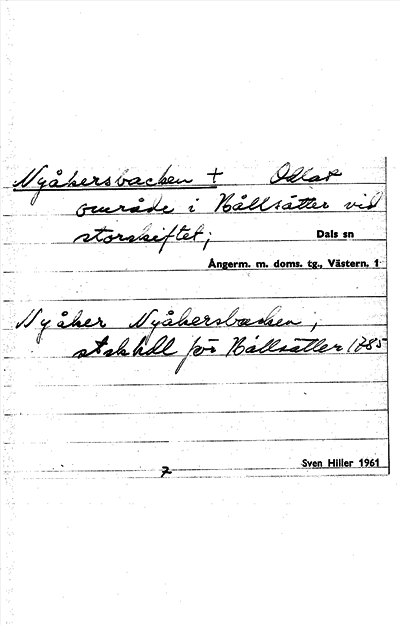 Nyåkersbacken † Odlat
område i Hållsätter vid
storskiftet;
Dals sn
Ångerm. m. doms. tg., Västern. 1
Nyåker Nyåkersbacken,
stskhdl för Hållsätter 1785
Sven Hiller 1961
7